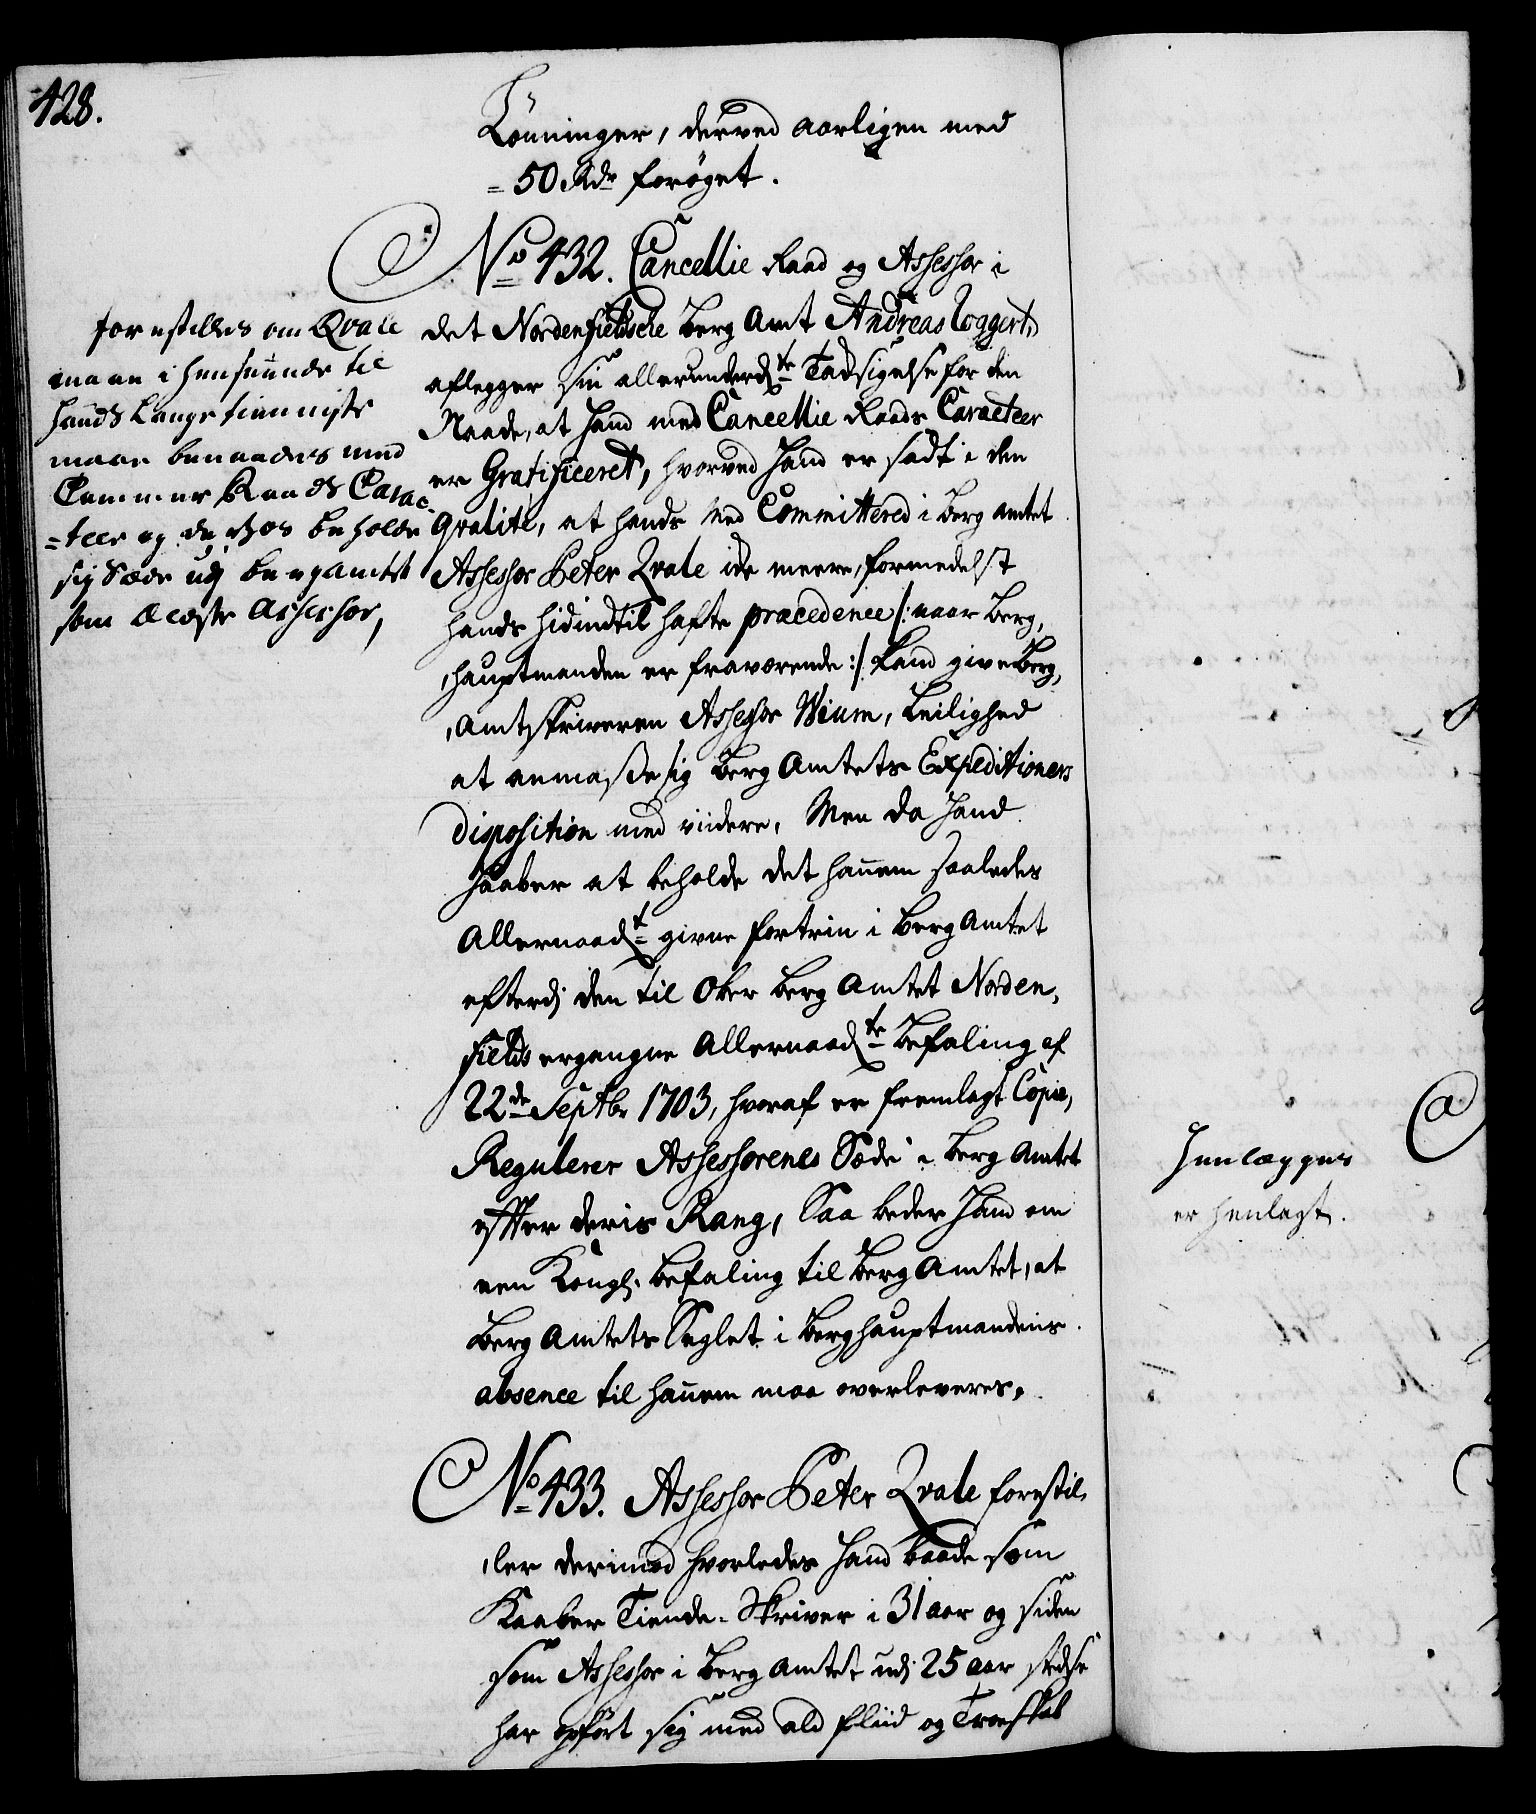 428.
Lönninger, derved aarligen med
= 50 Rdr forøget.
No 432. Cancellie Raad og Assessor i
det Nordenfieldsche Berg Amt Andreas
aflegger sin allerunderdte Tacksigelse for den
Naade, at hand med Cancellie Raads Caracteer
er Gratificeret, hvorved hand er sadt i den
Qvalité, at hands Med Committered i Berg Amtet
Assessor Peter Qvale icke meere, formedelst
hands hidindtil hafte præcedence /: naar Berg,
,hauptmanden er fraværende :/ kand give Berg,
,Amtskriveren Assessor Wium, Leilighed
at anmasse sig Berg Amtets Expeditioners
Disposition med videre, Men da hand
haaber at beholde det hannem saaledes
Allernaadt givne fortrin i Berg Amtet
efterdj den til Ober Berg Amtet Norden,
fields ergangne Allernaadte Befaling af
22de Septbr 1703, hvoraf er fremlagt Copie,
Regulerer Assessorenes Sæde i Berg Amtet
effter deris Rang, Saa beder hand om
een Kongl. Befaling til Berg Amtet, at
Berg Amtets Seglet i Berghauptmandens
absence til hannem maa overleveres,
No 433. Assessor Peter Qvale forestil,
,ler derimod hvorledes hand baade som
Kaaber Tiende-Skriver i 31 aar og siden
som Assessor i Berg Amtet udi 25 aar stedse
har opført sig med ald fliid og Troeskab
forestilles om Qvale
maae i henseende til
hands lange tienniste
maae benaades med
Cammer Raads Carac-
=teer og derhos beholde
sig Sæde udj bergamtet
som Ældste Assessor,
Henlægges
er henlagt.